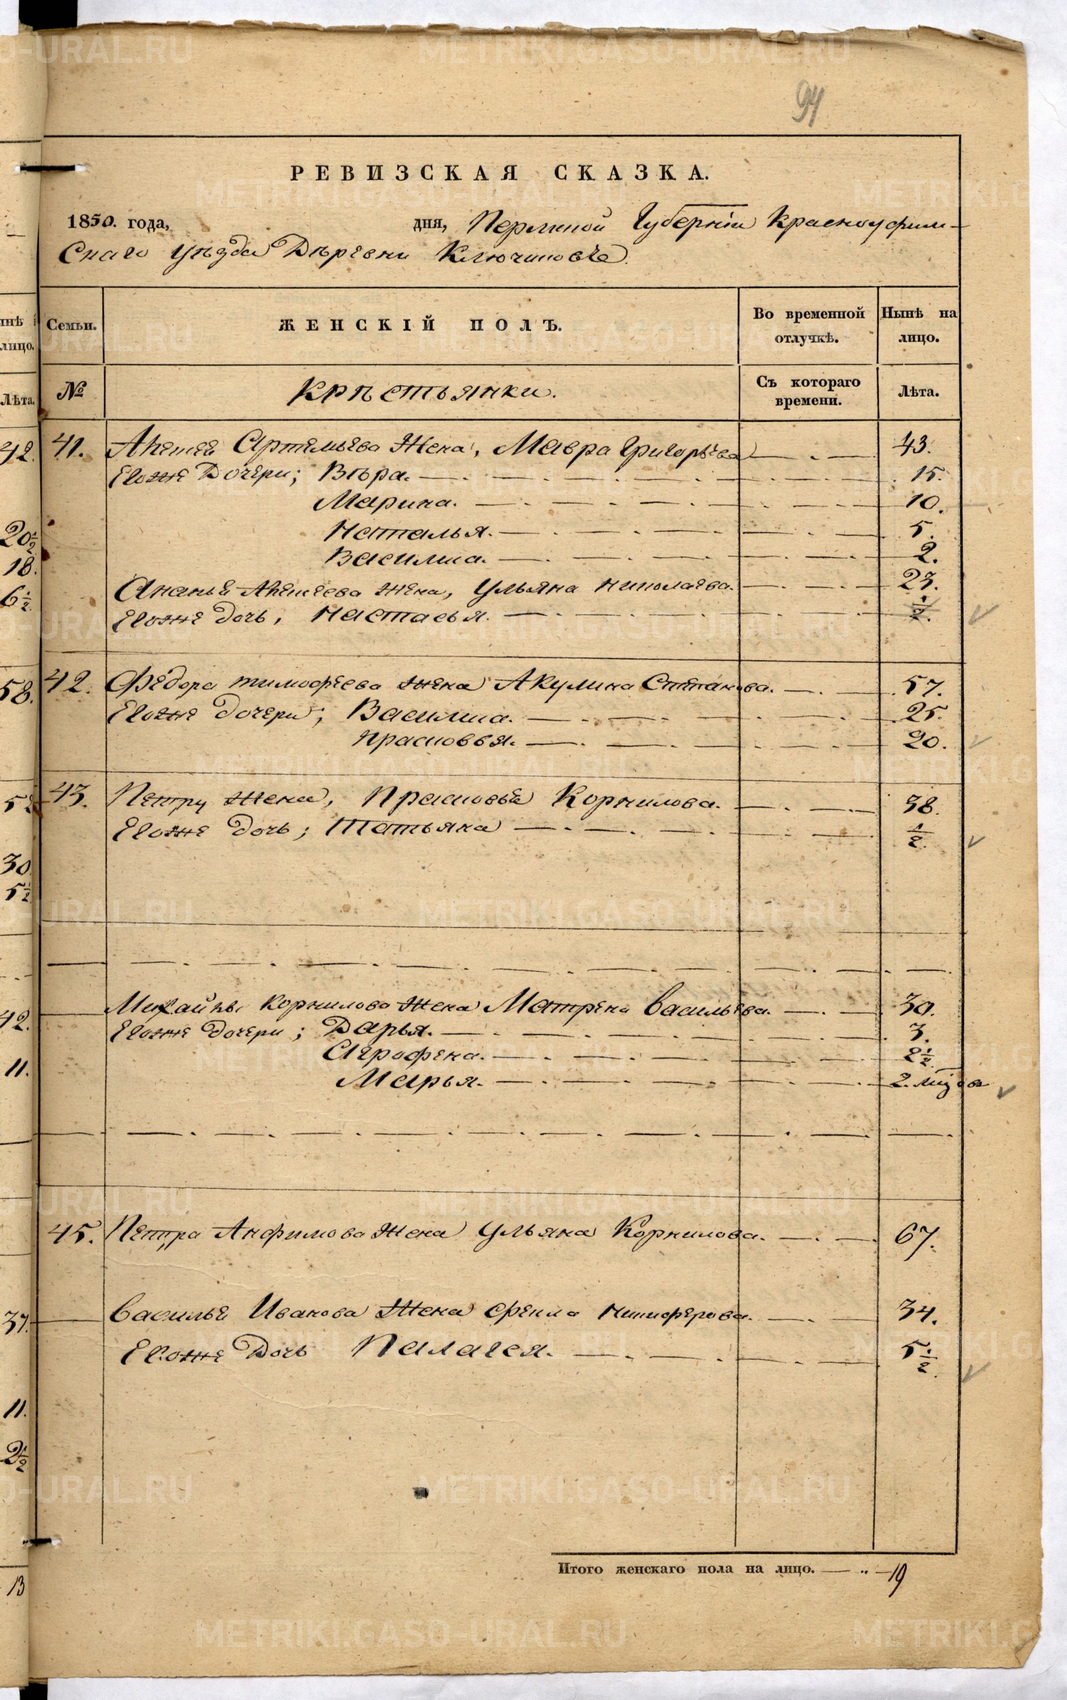 94
РЕВИЗСКАЯ СКАЗКА.
1850. года, дня, Пермской Губерніи Красноуфим-
скаго Уѣзда Деревни Ключиковъ
нѣ лицо. Семьи. ЖЕНСКІЙ ПОЛЪ. Во временной отлучкѣ. Нынѣ на лицо.
Лѣта. № Крестьянки. Съ котораго времени. Лѣта.
42. 41. Артемьева жена, Мавра Григорьева 43.
Евоже Дочери; Вѣра. 15.
Марина. 10.
20½ Наталья. 5.
18. Василиса. 2.
6½ Ананья жена, Ульяна Николаева. 23.
Евоже Дочь, Настасья. ½.
58. 42. Федора Тимофеева жена Акулина Степанова. 57.
Евоже Дочери; Василиса. 25.
Прасковья. 20.
43. Петра жена, Прасковья Корнилова. 38.
Евоже Дочь; Татьяна ½.
30
5½
Михайлы Корнилова жена Матрена Васильева. 30.
42. Евоже Дочери; Дарья. 3.
Аграфена. 2½
11. Марья. 2. мѣсяца
45. Петра Анфимова жена Ульяна Корнилова. 67.
37. Василья Иванова жена Фекла Никифорова. 34.
Евоже Дочь Палагея. 5½.
11.
2½
Итого женскаго пола на лицо. 19
13
METRIKI.GASO-URAL.RU